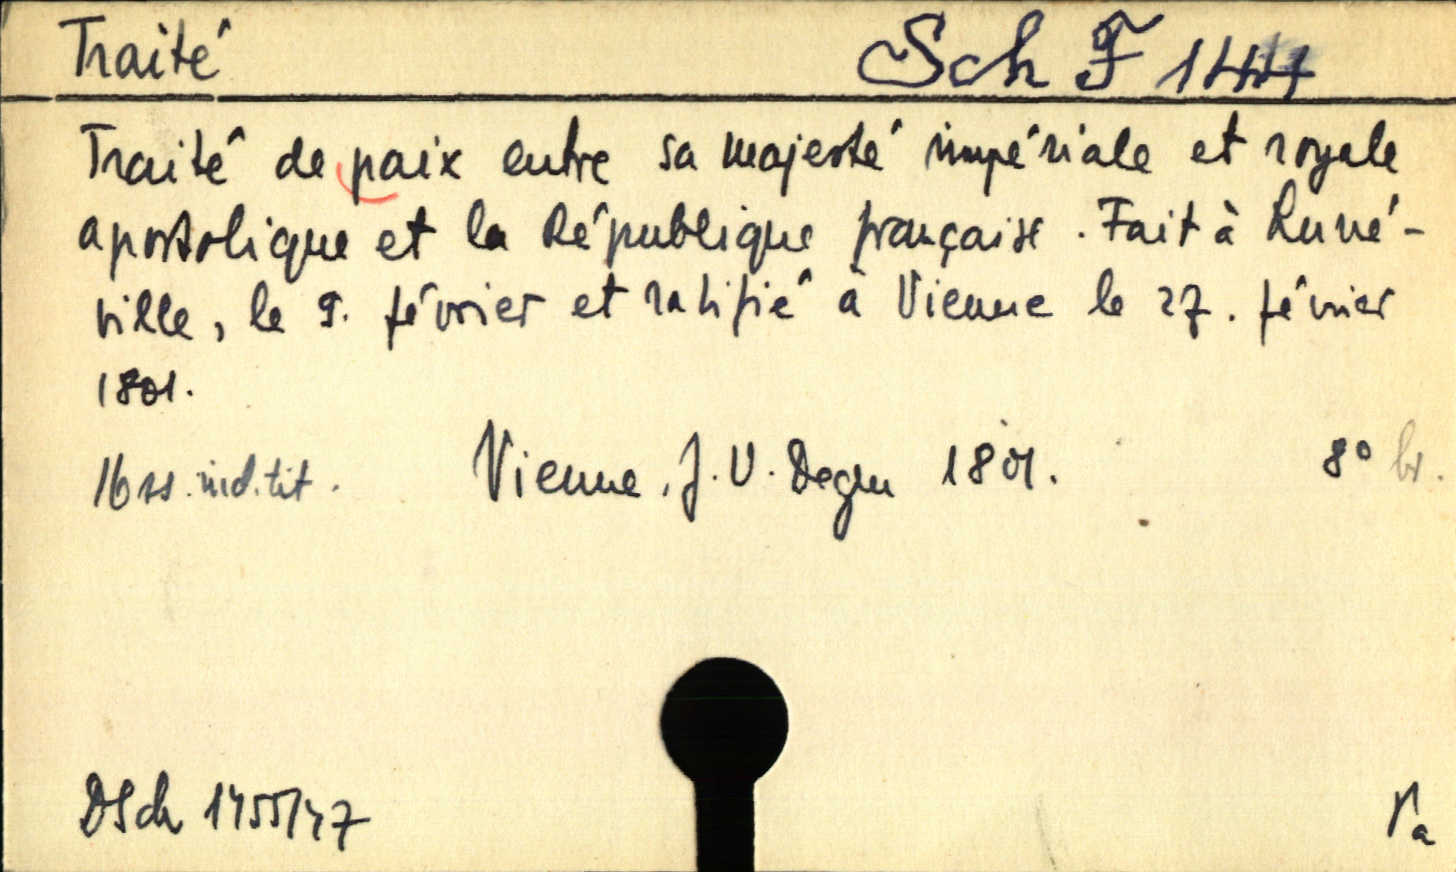 Traité Sch F 144
Traité de paix entre sa majesté impériale et royale
apostolique et la République française. Fait à Luné-
ville, le 9. février et ratifié à Vienne le 27. février
1801.
16 ss. incl. tit. Vienne, J. V. Degen 1801. 8° br.
DSch 1455/47